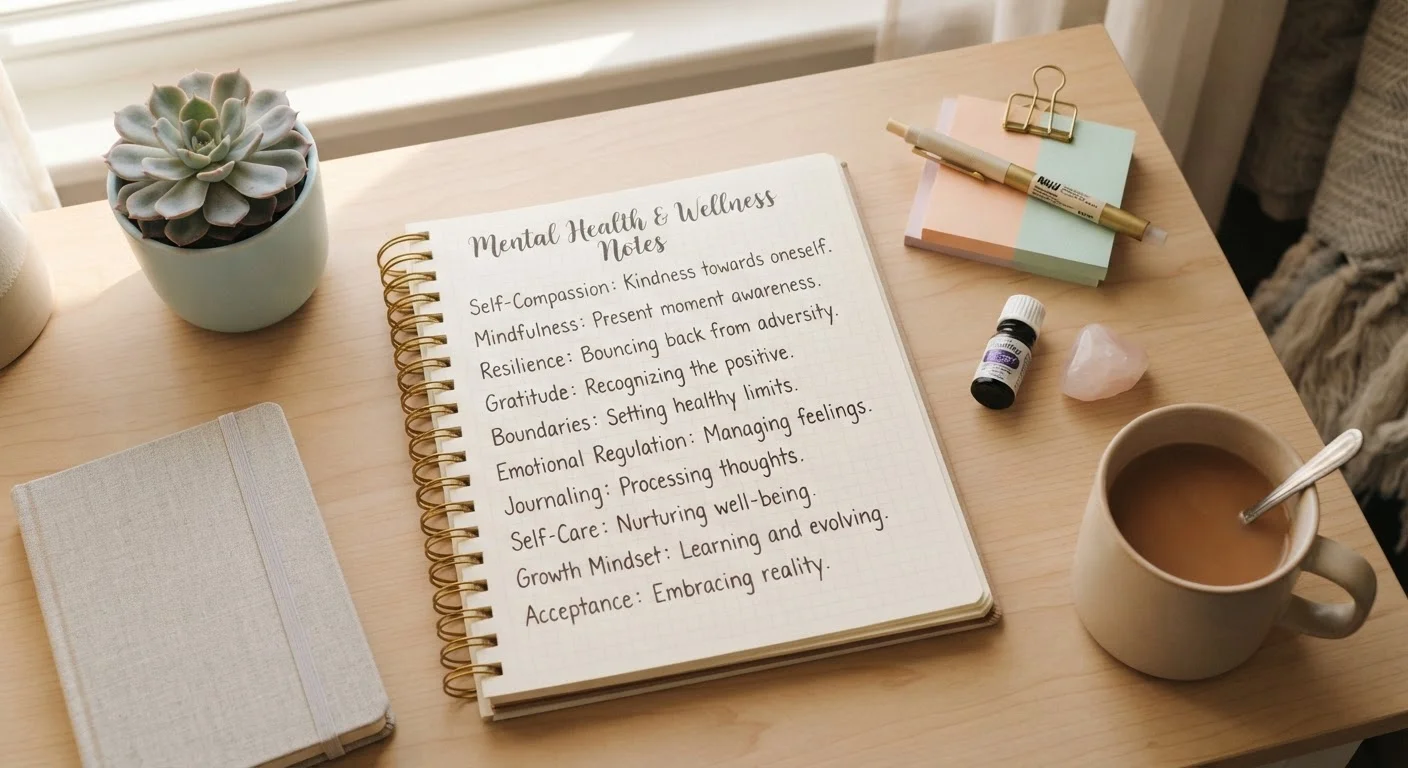 Mental Health & Wellness
Notes
Self-Compassion: Kindness towards oneself.
Mindfulness: Present moment awareness.
Resilience: Bouncing back from adversity.
Gratitude: Recognizing the positive.
Boundaries: Setting healthy limits.
Emotional Regulation: Managing feelings.
Journaling: Processing thoughts.
Self-Care: Nurturing well-being.
Growth Mindset: Learning and evolving.
Acceptance: Embracing reality.